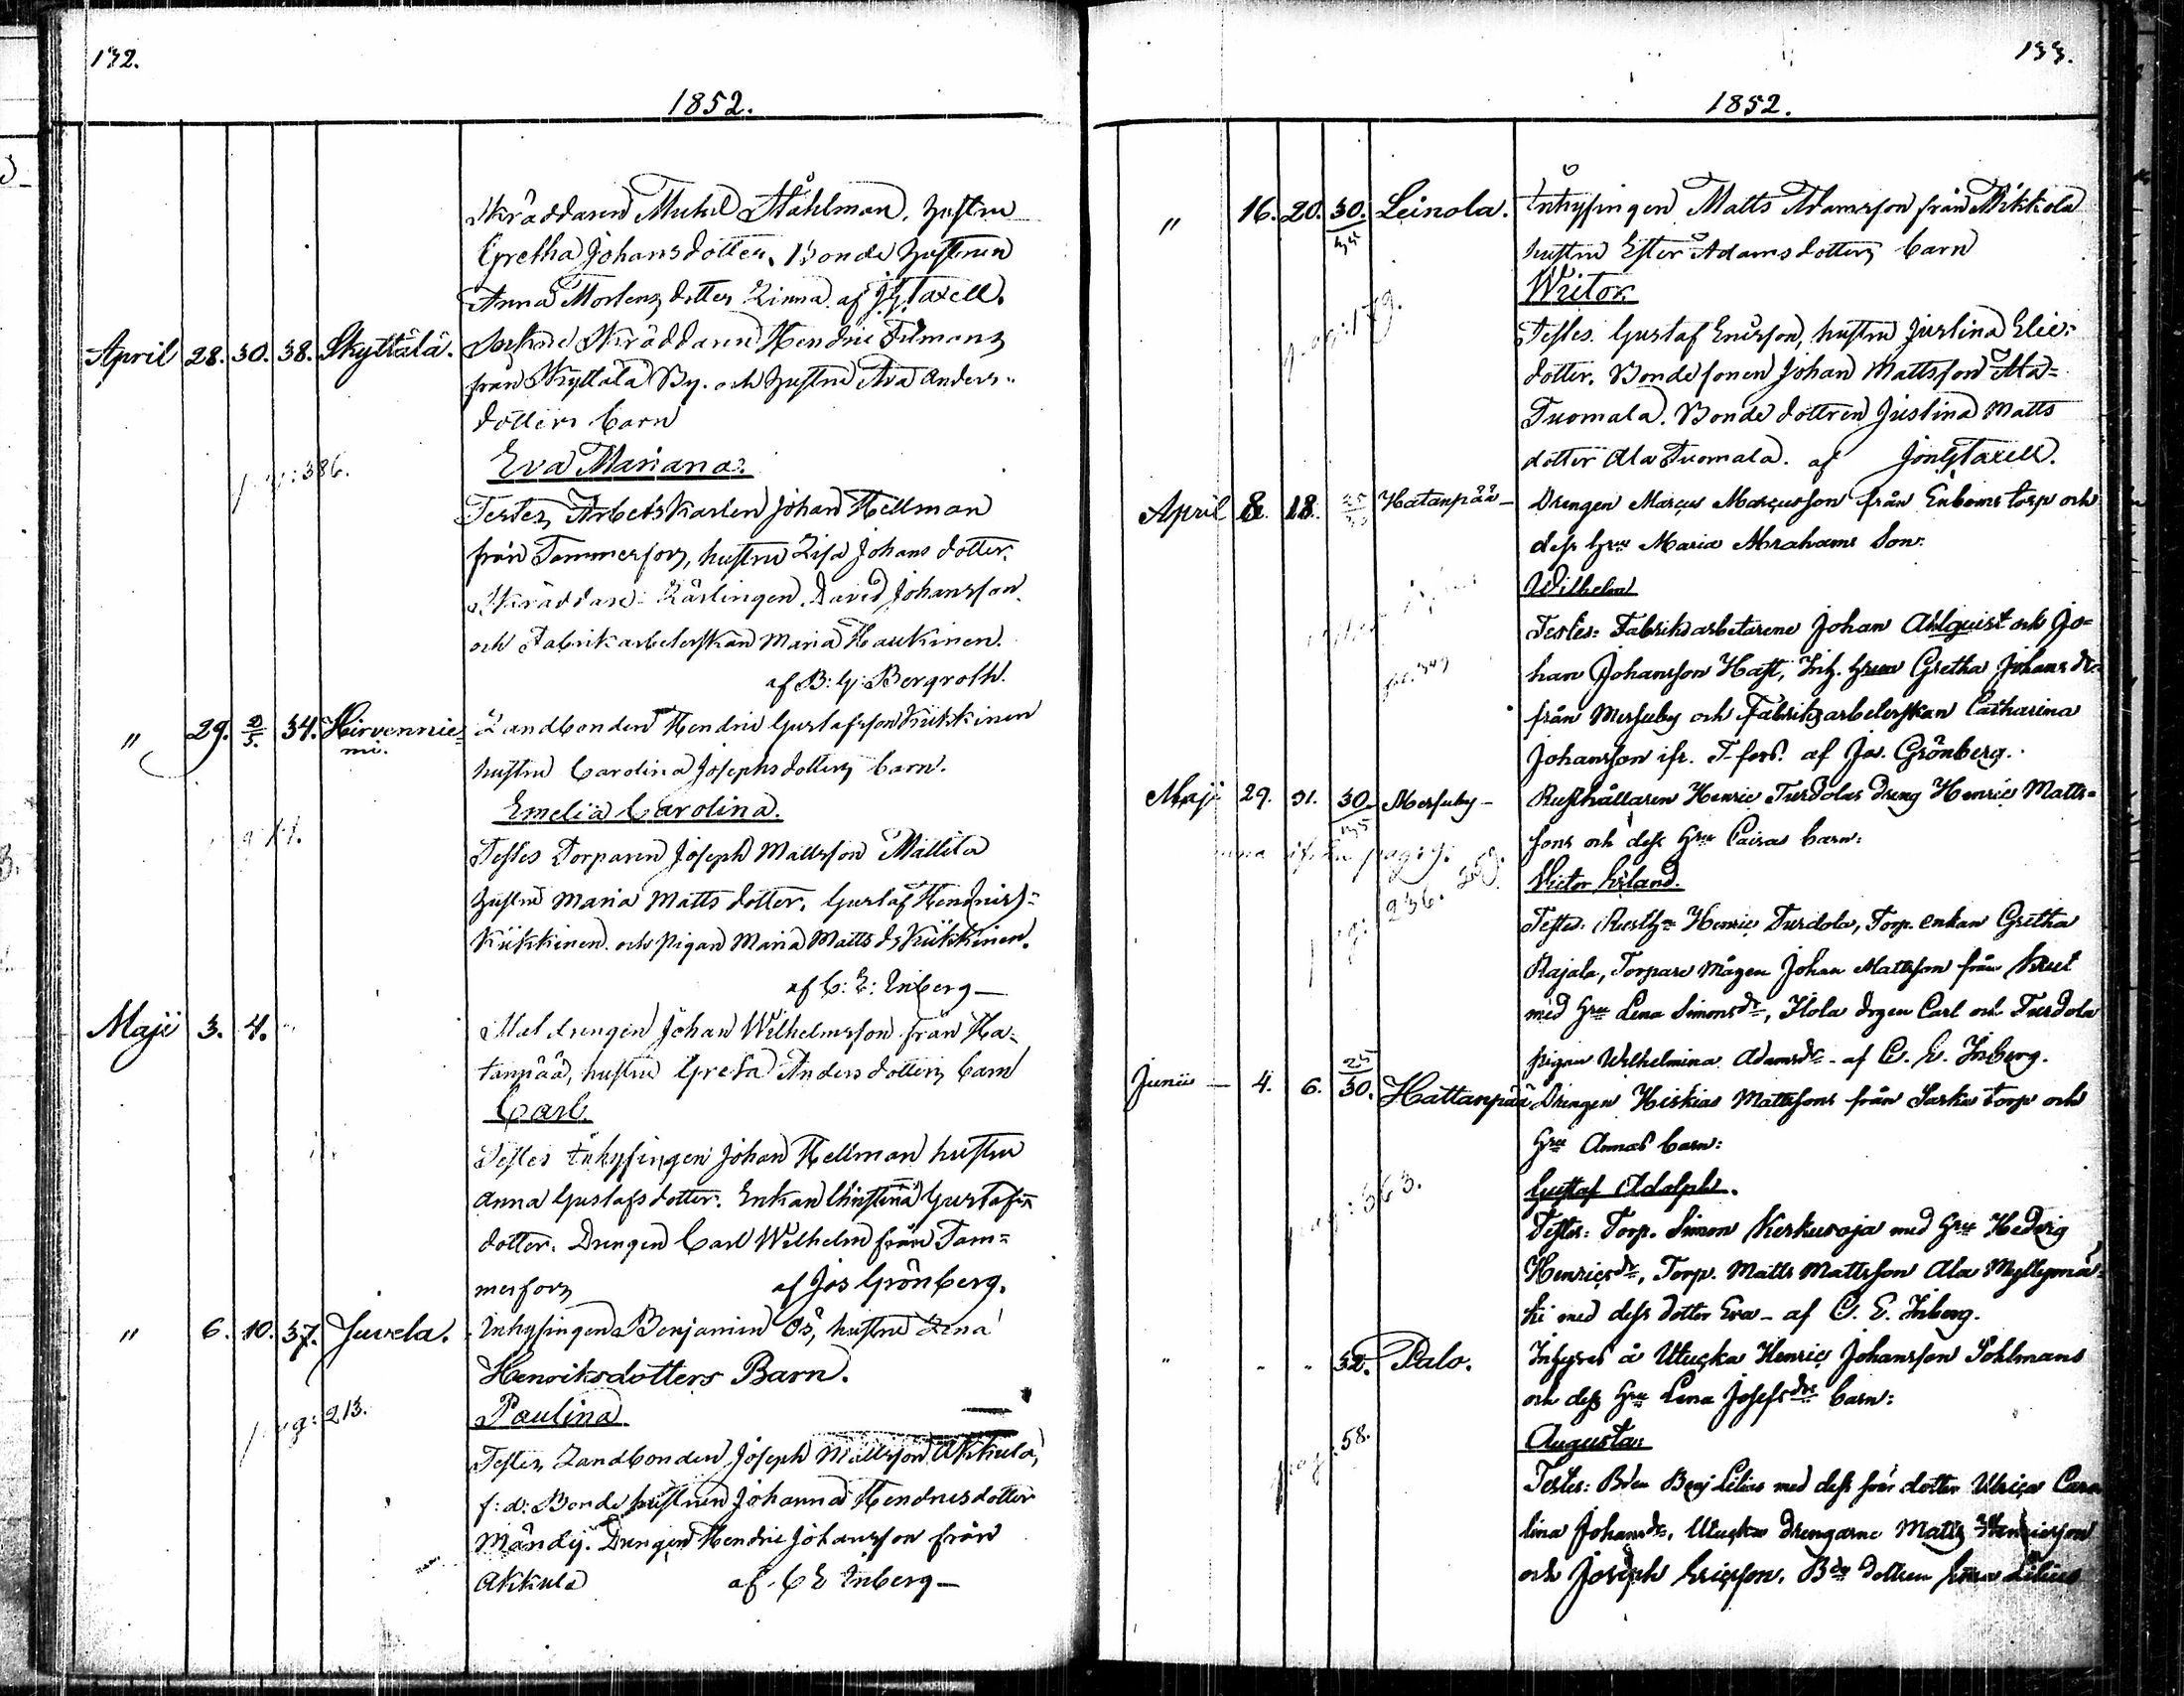 132.
1852.
Skräddaren Michel Ståhlman, hustru
Gretha Johansdotter. Bonde hustrun
Anna Mortensdotter Linna. af J.G. Taxell.
April 28. 30. 38. Skyttälä. Socken Skräddaren Hendric Filmans
från Skyttälä By. och hustru Eva Anders-
dotters barn
Eva Mariana.
pag: 386.
Testes, Arbetskarlen Johan Hellman
från Tammerfors, hustru Lisa Johans dotter.
Skräddare Lärlingen David Johansson
och Fabrik arbeterskan Maria Haukinen.
af B: G: Bergroth.
" 29. 2/5. 34. Hirvennie= Landbonden Hendric Gustafsson Kükkinen
mi.
hustru Carolina Josephsdotters barn.
Emelia Carolina.
Testes Torparen Joseph Mattsson Mattila
hustru Maria Matts dotter. Gustaf Hendrics-
Kükkinen. och pigan Maria Matts dr Kükkinen.
af C: E: Inberg —
Maji 3. 4. Mal drengen Johan Wilhelmsson från Ha=
tanpää, hustru Greta Anders dotters barn
Carl.
Testes Inhysingen Johan Hellman hustru
Anna Gustafsdotter. Enkan Christina Gustafs
dotter. Drengen Carl Wilhelm från Tam=
merfors af Jos Grönberg.
" 6. 10. 37. Juvela. Inhysingen Benjamin Ös, hustru Lena
Henriksdotters Barn.
pag: 213.
Paulina
Testes, Landbonden Joseph Mattsson Akkula,
f: d: Bonde hustrun Johanna Hendricsdotter
Mändy. Drengen Hendric Johansson från
Akkula af C E Inberg —
133.
1852.
" 16. 20. 30. Leinola. Inhysingen Matts Adamsson från Mikkola
hustru Ester Adamsdotters barn
Wictor
179.
Testes. Gustaf Ericsson, hustru Justina Elie=
dotter. Bondesonen Johan Mattsson Ala=
Tuomala. Bonde dottren Justina Matts
dotter Ala Tuomala. af Jon G Taxell.
April 8. 18. Hatanpää — Drengen Marcus Marcusson från Enboms torp och
dess Hru Maria Abrahams Son:
Wilhelm
Testes: Fabriks arbetarene Johan Ahlquist och Jo=
han Johansson Hast, Inh. Hrun Gretha Johans dr
från Messuby och Fabriks arbeterskan Catharina
Johansson ifr. T-fors. af Jos. Grönberg.
Maji 29. 31. 30. Messuby — Rusthållaren Henric Turdolas dreng Henric Matts=
sons och dess Hru Caisas barn:
236.
Victor Erland.
Testes: Rusth. Henric Turdola, Torp. enkan Gretha
Rajala, Torpare Mågen Johan Mattsson från
med Hru Lena Simons dr, drgen Carl och Turdola
pigan Wilhelmina Adamsdr - af C. E. Inberg.
Junii — 4. 6. 25/30. Hattanpää Drengen Hiskias Mattssons från Sarka torp och
Hru Annas barn:
pag: 363.
Gustaf Adolph.
Testes: Torp. Simon Kerkusoja med Hru Hedvig
Henricsdr, Torp. Matts Mattsson Ala Myllymä=
ki med dess dotter Eva - af C. E. Inberg.
" " " 32. Palo. Inhyses å Utucka Henric Johansson Sohlmans
och dess Hru Lena Josefsdrs barn:
pag 58.
Augusta:
Testes: Bden Benj Lilius med dess dotter Ulrica Caro
lina Johansdr, Utucka drengarne Matts Henricsson
och Joseph Ericsson, Bde dottren Lilius